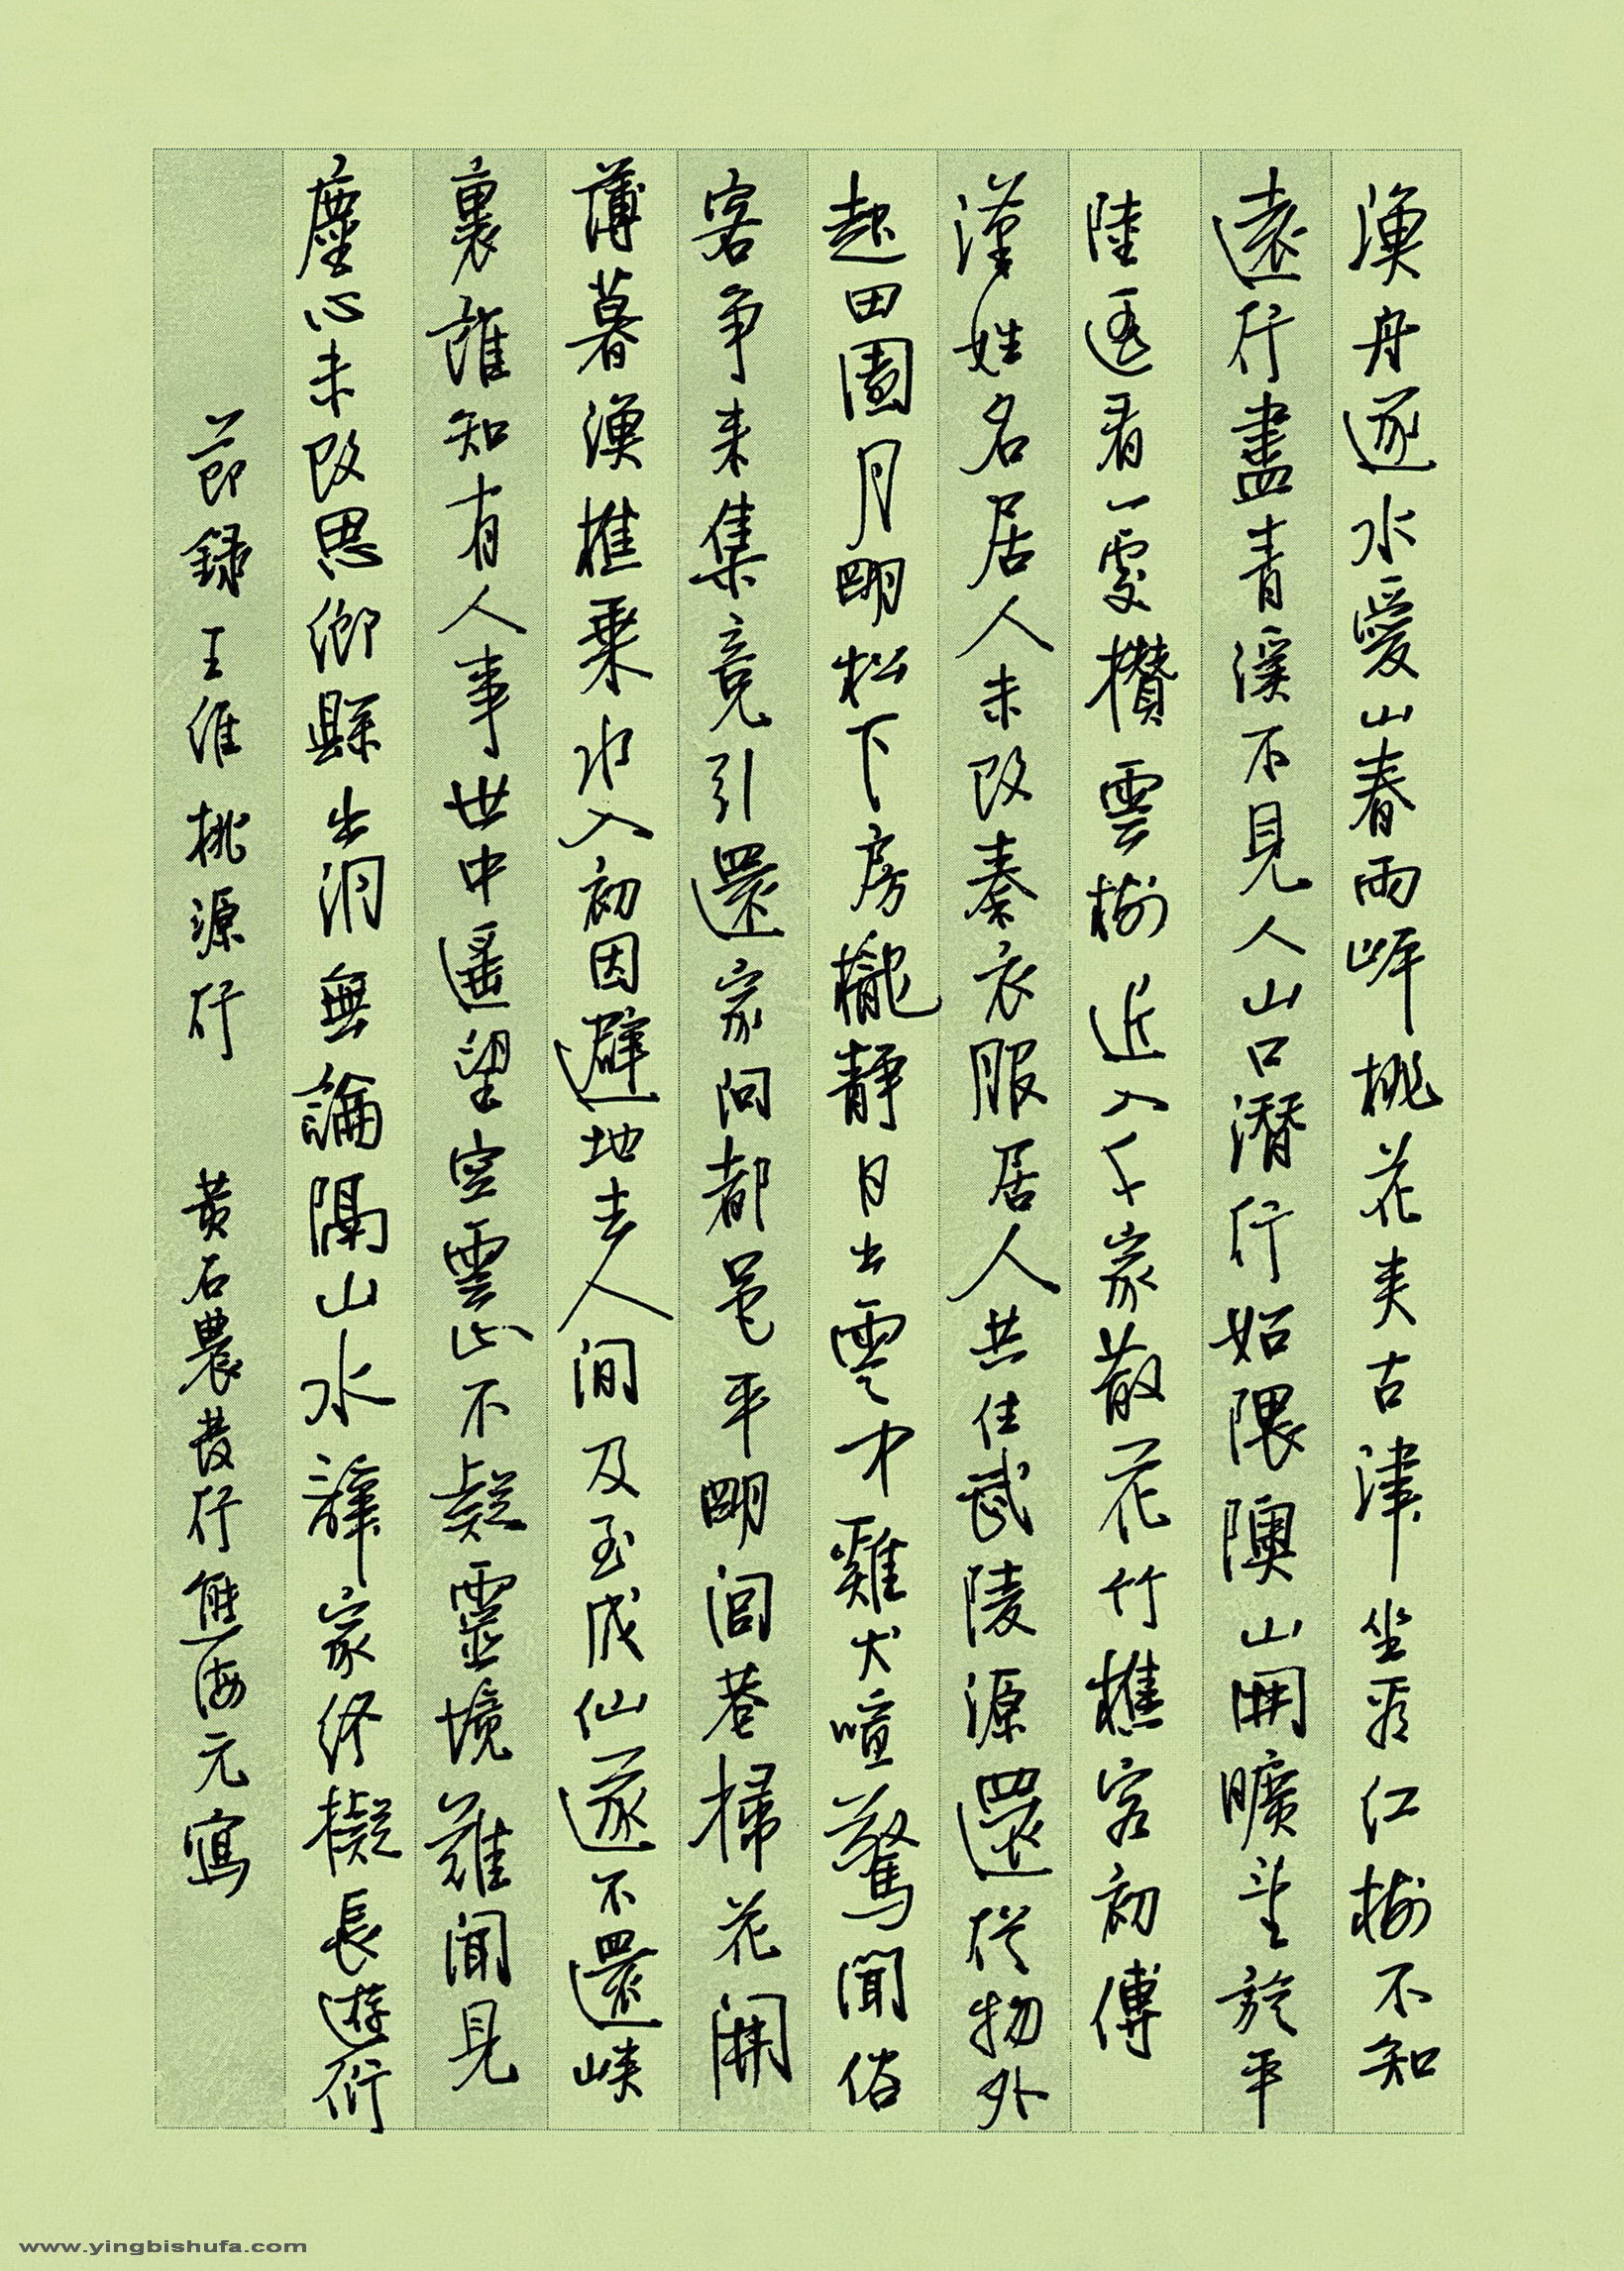 漁舟逐水愛山春兩岸桃花夾古津坐看紅樹不知
遠行盡青溪不見人山口潛行始隈隩山開曠望旋平
陸遙看一處攢雲樹近入千家散花竹樵客初傳
漢姓名居人未改秦衣服居人共住武陵源還從物外
起田園月明松下房櫳靜日出雲中雞犬喧驚聞俗
客爭來集競引還家問都邑平明閭巷掃花開
薄暮漁樵乘水入初因避地去人間及至成仙遂不還峽
裏誰知有人事世中遙望空雲山不疑靈境難聞見
塵心未改思鄉縣出洞無論隔山水辭家終擬長遊衍
節録王維桃源行 黃石農行海元寫
www.yingbishufa.com